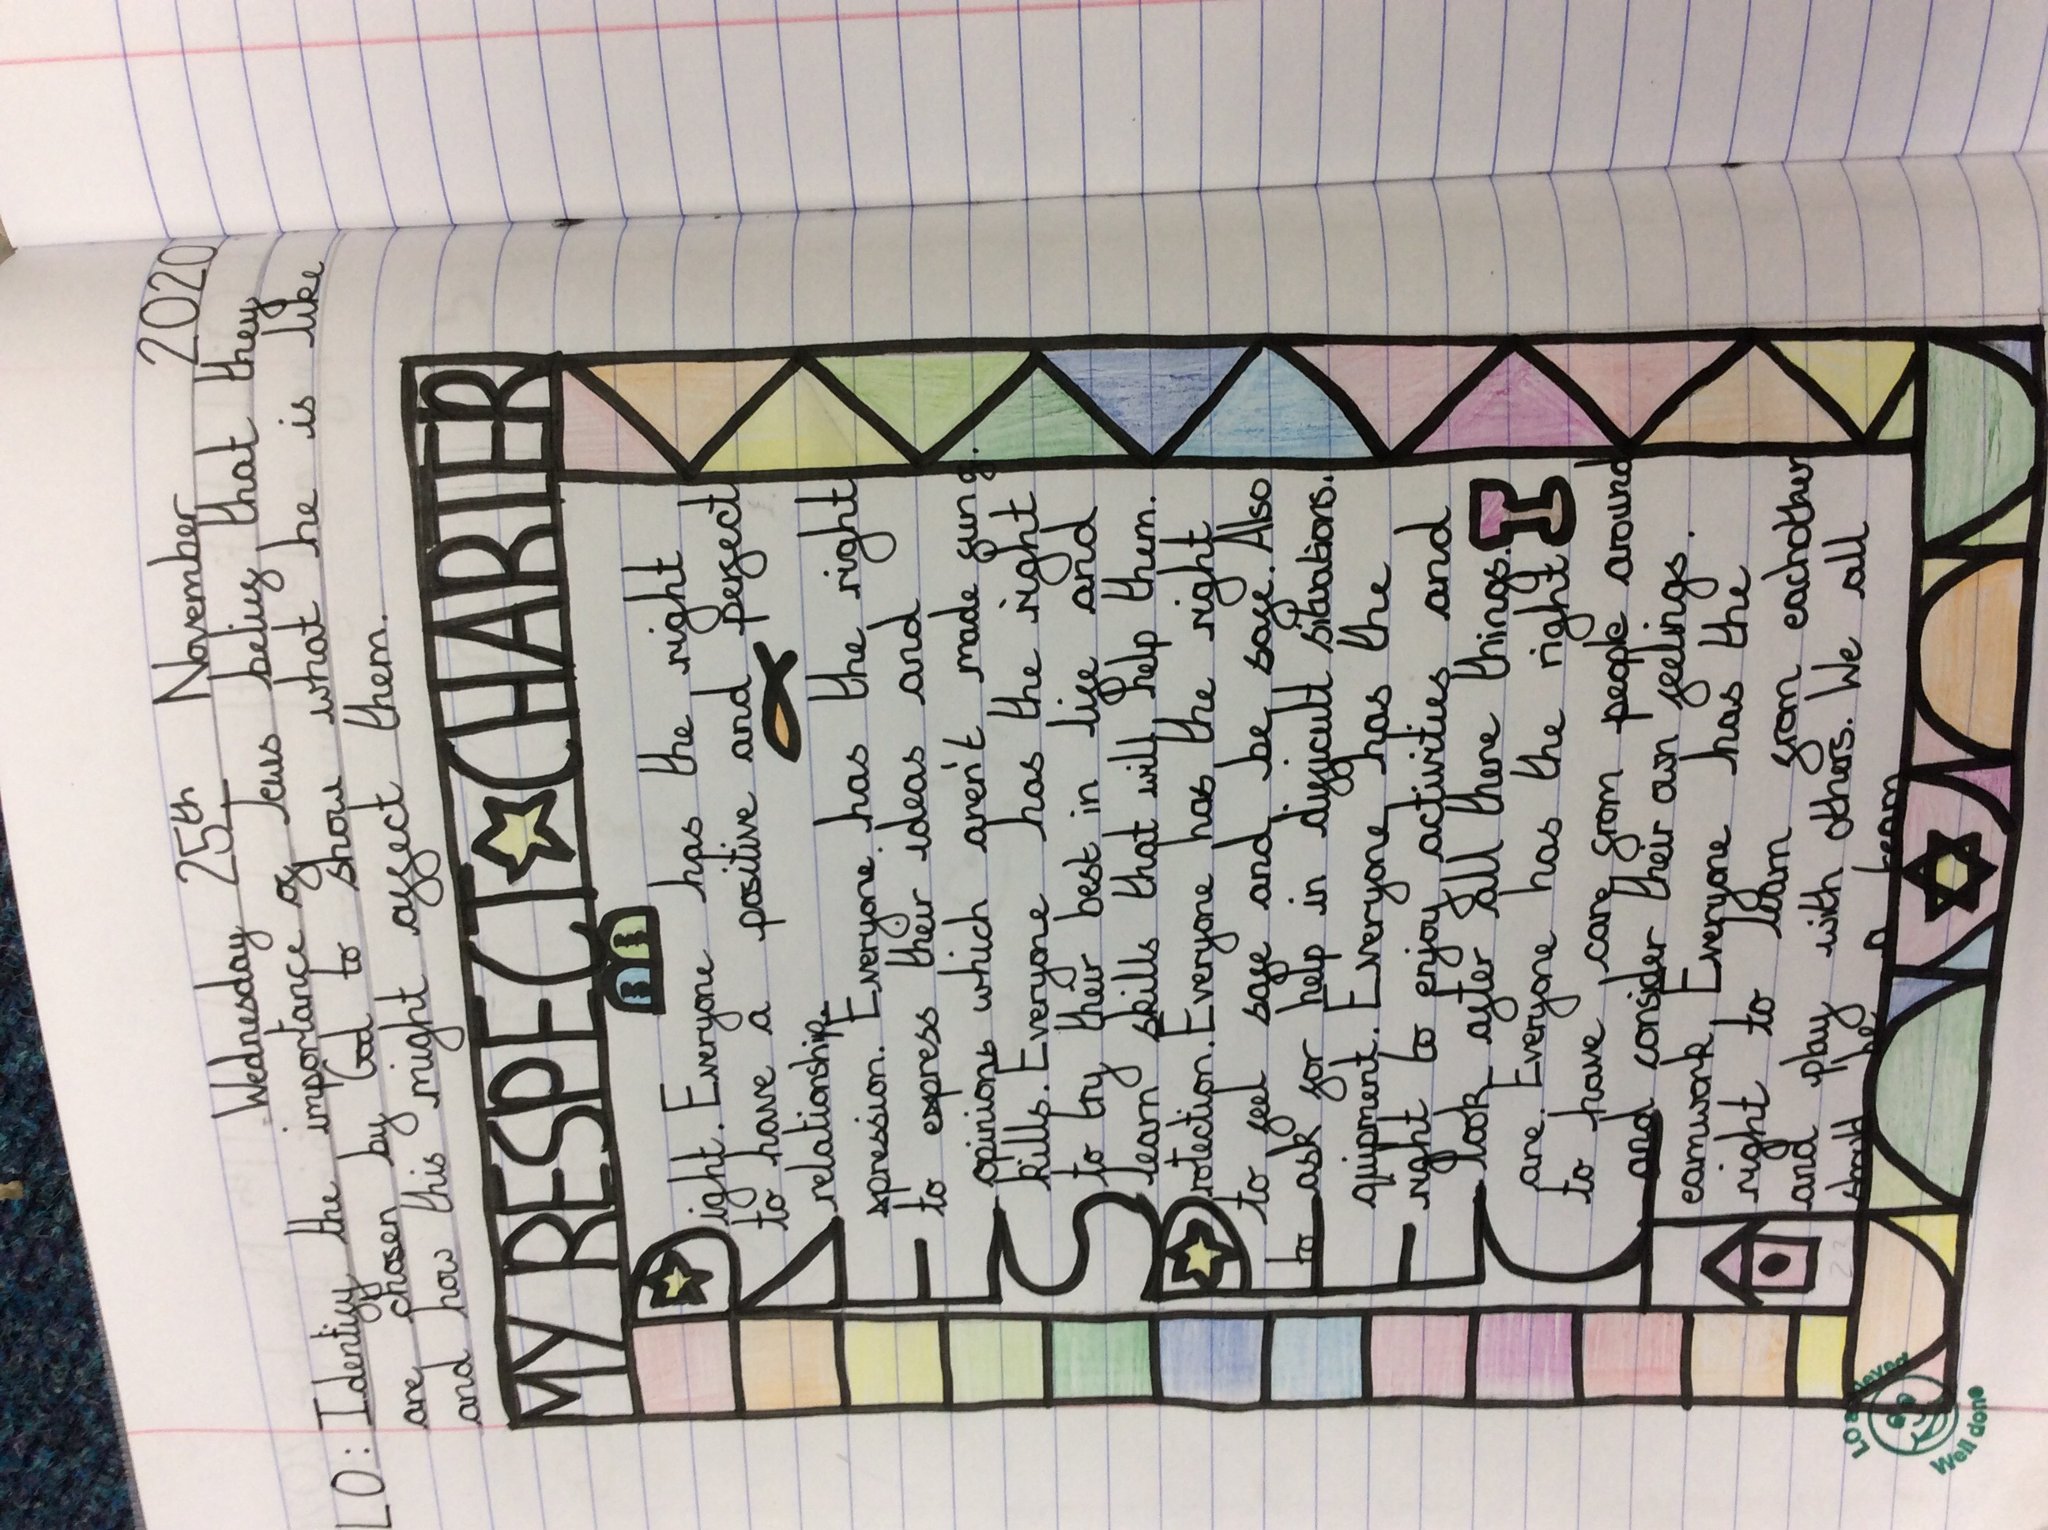 Wednesday 25th November 2020
LO: Identify the importance of Jews belief that they
are chosen by God to show what he is like
and how this might affect them.
MY RESPECT CHARTER
Right. Everyone has the right
to have a positive and perfect
relationship.
Expression. Everyone has the right
to express their ideas and
opinions which aren't made fun of.
Skills. Everyone has the right
to try their best in life and
learn skills that will help them.
Protection. Everyone has the right
to feel safe and be safe. Also
to ask for help in difficult situations.
Equipment. Everyone has the
right to enjoy activities and
look after all there things.
Care. Everyone has the right
to have care from people around
and consider their own feelings.
Teamwork. Everyone has the
right to learn from eachother
and play with others. We all
should be a team
Well done